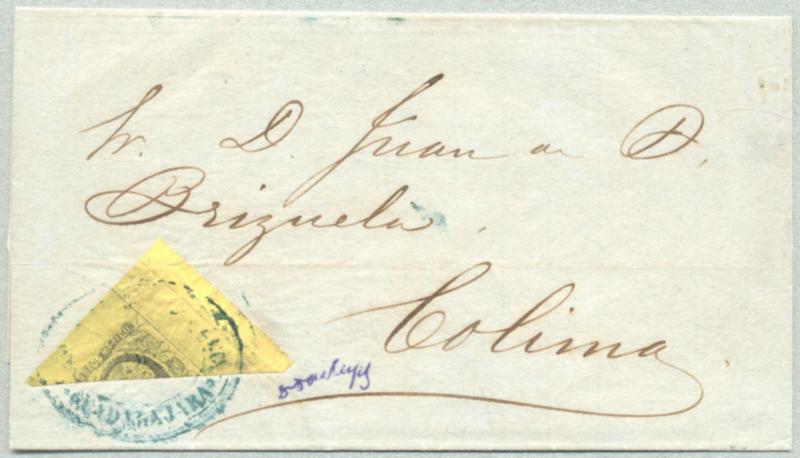 Sr. D. Juan de D.
Brizuela.
Colima.
GUADALAJARA